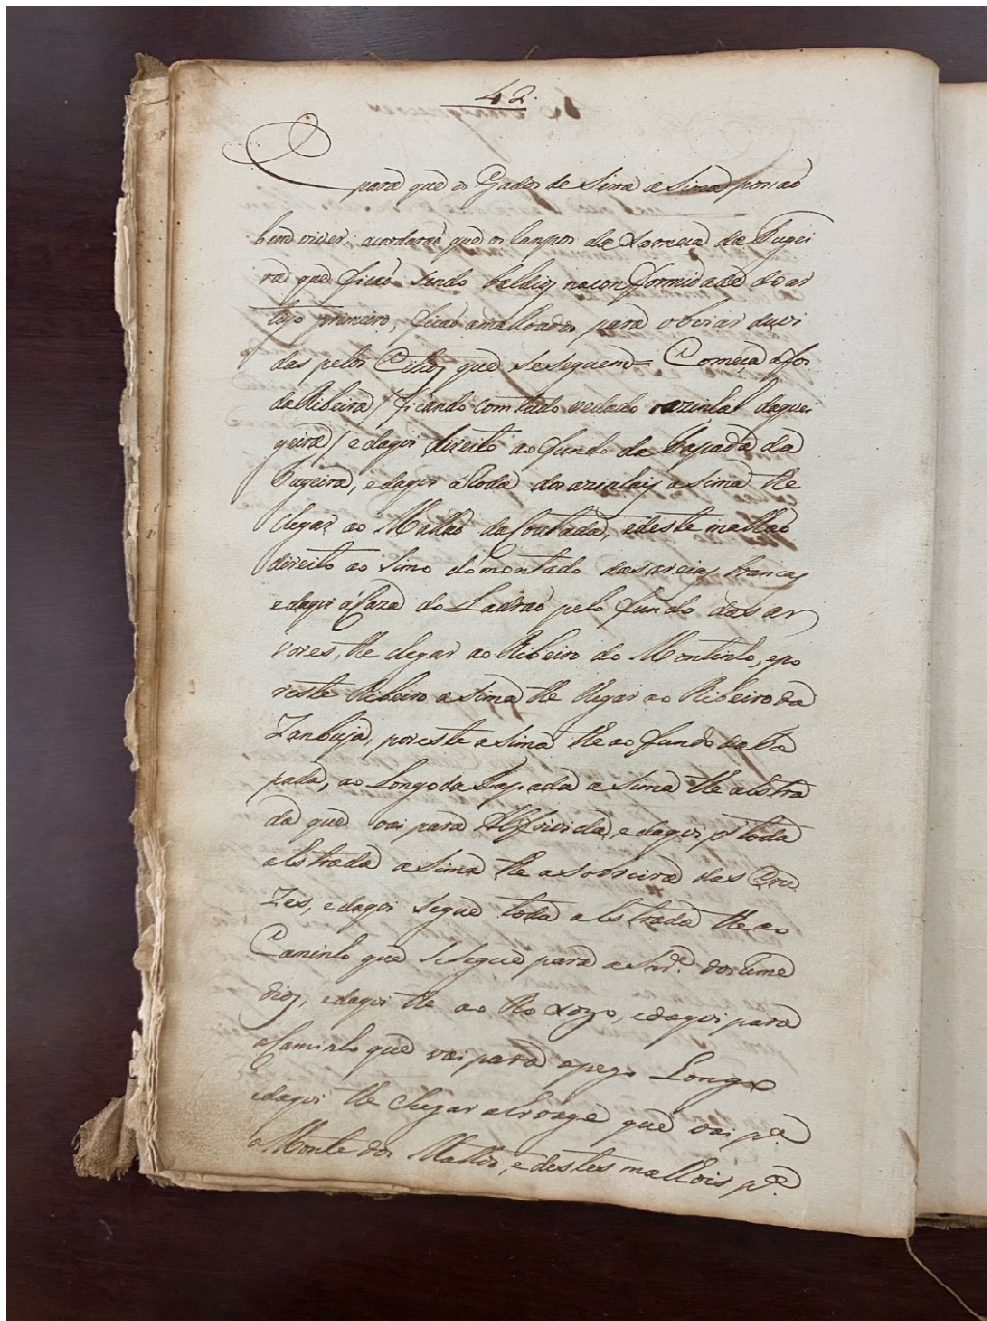 42.
para que os Gados de Sima a Sima possaõ
bem viver; acordaraõ que os Campos de
ra que ficaõ sendo baldios na conformidade do ar
tigo primeiro, ficaõ amalhoados para obviar duvi
das pelos Citios que se seguem = Começa a foz
da Ribeira / ficando com tudo vedado o azinhal da
geira / e daqui direito ao fundo da Tapada da
e daqui á Roda dos azinhais a sima the
chegar ao Malhaõ da Coutada, e deste malhaõ
direito ao simo do montado das areias brancas
e daqui á Caza do Ladraõ pelo fundo das ar
vores, the chegar ao Ribeiro do Montinho, e po
r este Ribeiro a sima the chegar ao Ribeiro da
Zanbuja, por este a sima the ao fundo da Ta
pada, ao Longo da Tapada a sima the a Estra
da que vai para e daqui por toda
a Estrada a sima the a sovreira das Cru
zes, e daqui segue toda a Estrada the ao
Caminho que se segue para a Snr.ª dos Reme
dios, e daqui the ao e daqui para
o Caminho que vai para o pego Longo
e daqui the chegar a que vai p.ª
o Monte dos e destes malhois p.ª